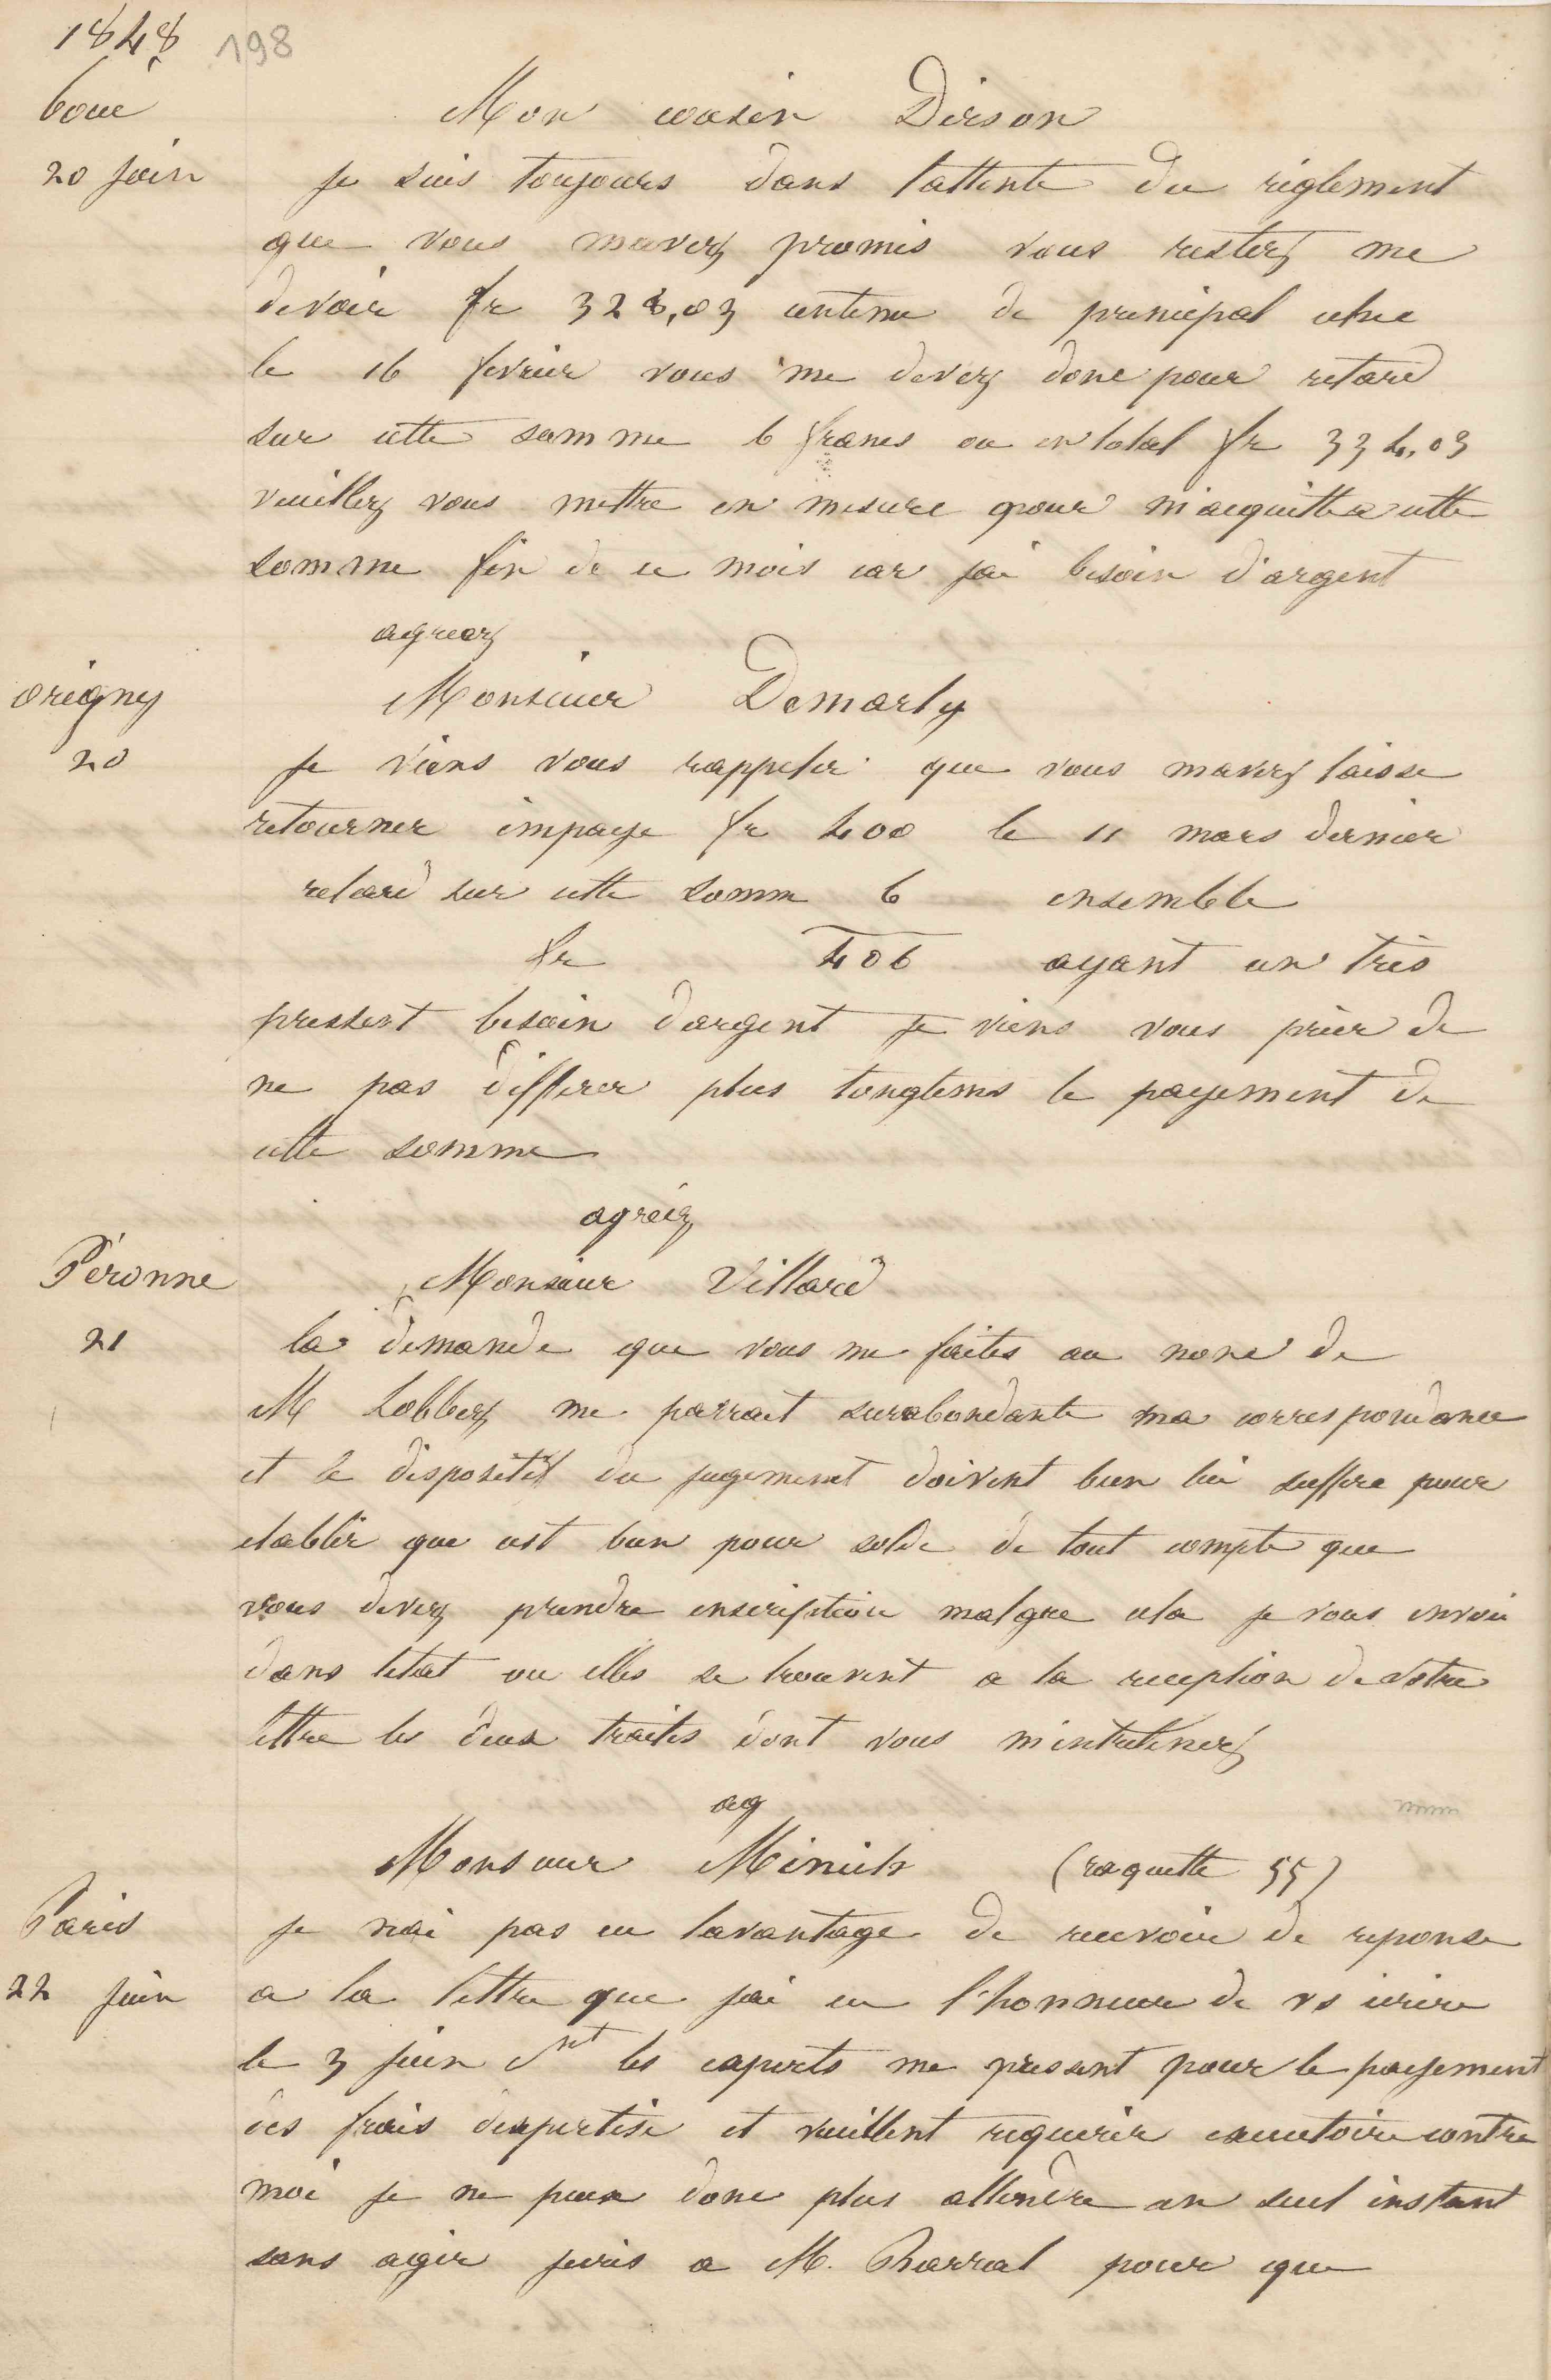 1848 198
boué
Mon cousin Dirson
20 juin
je suis toujours dans lattente du réglement
que vous mavez promis vous restez me
devoir fr 328,03 centime de principal echue
le 16 fevrier vous me devez donc pour retard
sur cette somme 6 francs ou en total fr 334,03
veuillez vous mettre en mesure pour m'acquitter cette
somme fin de ce mois car jai besoin d'argent
agreez
origny
Monsieur Demarly
20
je viens vous rappeler que vous mavez laisse
retourner impaye fr 400 le 11 mars dernier
retard sur cette somm 6 ensemble
fr 406 ayant un très
pressent besoin dargent je viens vous prier de
ne pas differer plus longtems le payement de
cette somme
agréez
Péronne
Monsieur Villard
21
la demande que vous me faites au nome de
M Lobbez me parrait surabondante ma correspondance
et le dispositif du jugement doivent bien lui suffire pour
etablir que cest bien pour solde de tout compte que
vous devez prendre inscription malgre cela je vous envoie
dans letat ou elles se trouvent a la reception de votre
lettre les deux traites dont vous m'entretenez
ag
Monsieur Minich (raquette 55)
Paris
je nai pas eu lavantage de recevoir de reponse
22 juin
a la lettre que jai eu l'honneur de vs ecrire
le 3 juin les experts me pressent pour le payement
des frais dexpertise et veuillent requerir executoire contre
moi je ne peux donc plus attendre un seul instant
sans agir jecris a M. Barral pour que